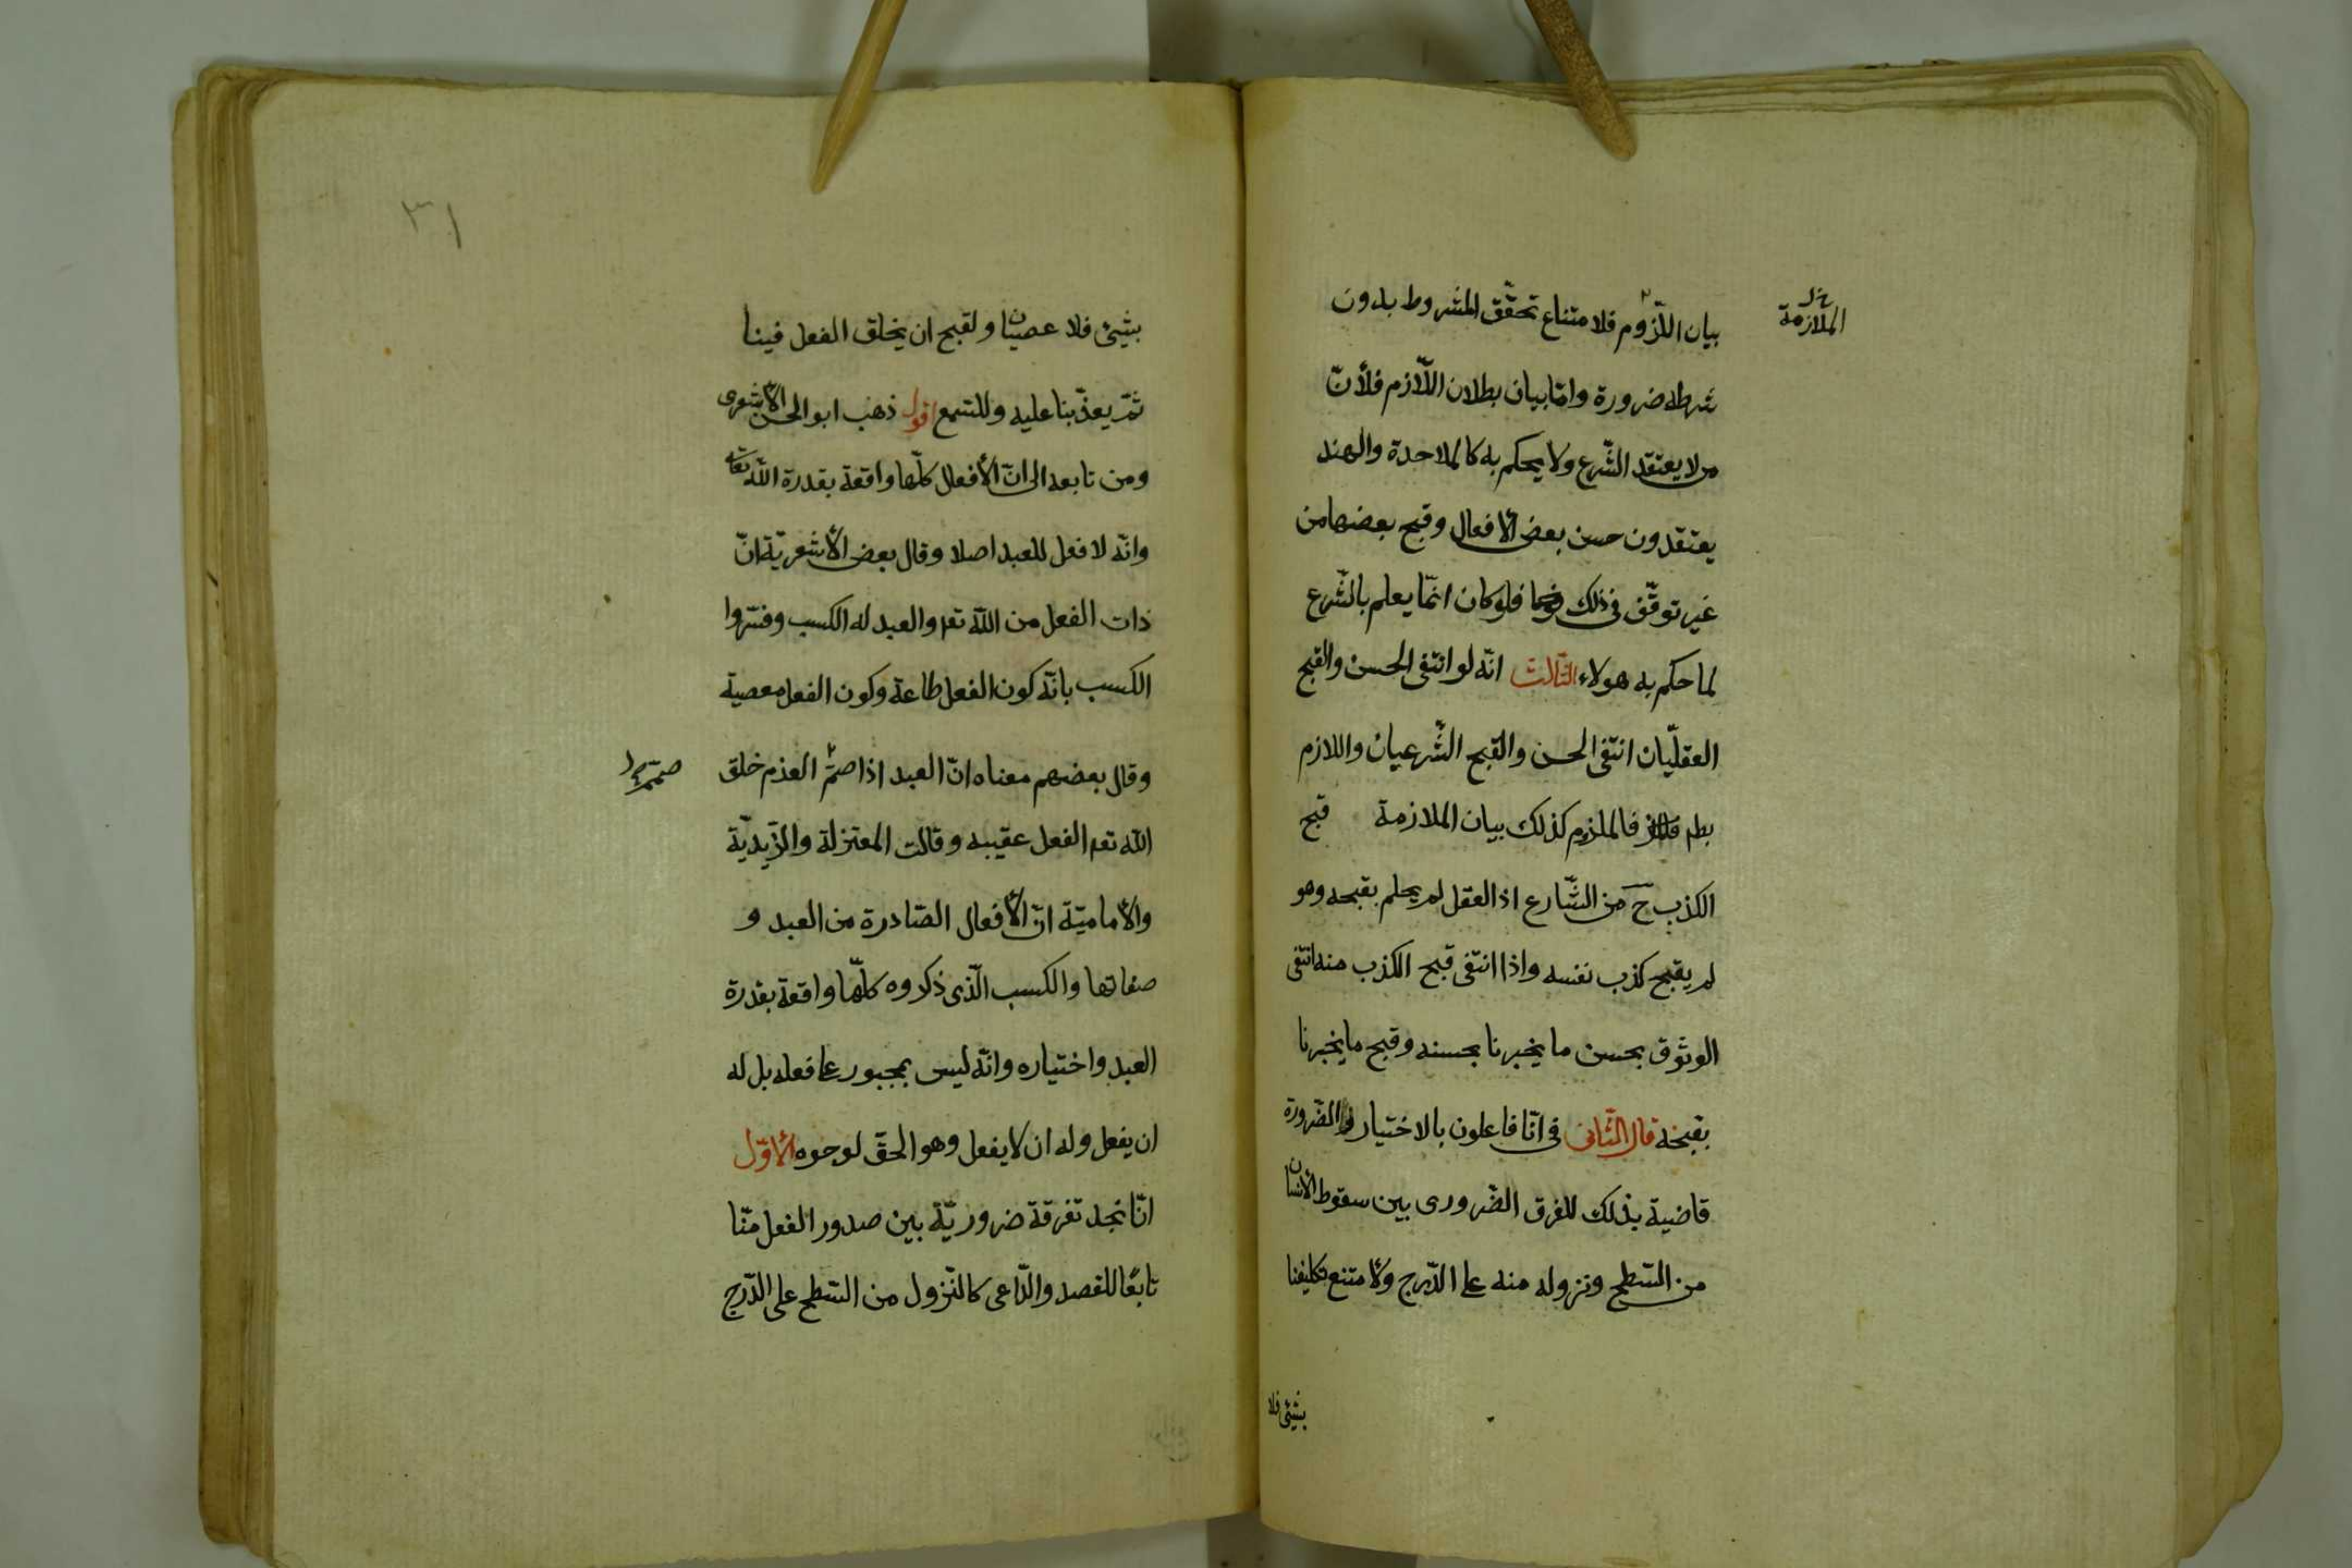 الملازمة خ ل
بيان اللّزوم فلامتناع تحقّق المشروط بدون
شرطه ضرورة وامّا بيان بطلان اللّازم فلأنّ
من لا يعتقد الشّرع ولا يحكم به كالملاحدة والهند
يعتقدون حسن بعض الأفعال وقبح بعضها من
غير توقّف فى ذلك فلو كان انّما يعلم بالشّرع
لما حكم به هولاء الثّالث انّه لو انتفى الحسن والقبح
العقليّان انتفى الحسن والقبح الشّرعيان واللازم
بط فالملزوم كذلك بيان الملازمة قبح
الكذب ح من الشّارع اذ العقل لم يحكم بقبحه وهو
لم يقبح كذب نفسه واذا انتفى قبح الكذب منه انتفى
الوثوق بحسن ما يخبرنا بحسنه وقبح ما يخبرنا
بقبحه قال الثّانى فى انّا فاعلون بالاختيار والضّرورة
قاضية بذلك للفرق الضّرورى بين سقوط الأنسان
من السّطح ونزوله منه على الدّرج ولأمتنع تكليفنا
بشئ فلا
٣١
بشئ فلا عصيان ولقبح ان يخلق الفعل فينا
ثمّ يعذّبنا عليه وللسّمع اقول ذهب ابو الحسن الأشعرى
ومن تابعه الى انّ الأفعال كلّها واقعة بقدرة اللّه تعالى
وانّه لا فعل للعبد اصلا وقال بعض الأشعريّة انّ
ذات الفعل من اللّه تع والعبد له الكسب وفسّروا
الكسب بانّه كون الفعل طاعة وكون الفعل معصية
وقال بعضهم معناه انّ العبد اذا صمّ العزم خلق
صمّم
اللّه تع الفعل عقيبه وقالت المعتزلة والزّيديّة
والأماميّة انّ الأفعال الصّادرة من العبد و
صفاتها والكسب الّذى ذكروه كلّها واقعة بقدرة
العبد واختياره وانّه ليس بمجبور على فعله بل له
ان يفعل وله ان لا يفعل وهو الحقّ لوجوه الأوّل
انّا نجد تفرقة ضروريّة بين صدور الفعل منّا
تابعًا للقصد والدّاعى كالنّزول من السّطح على الدّرج